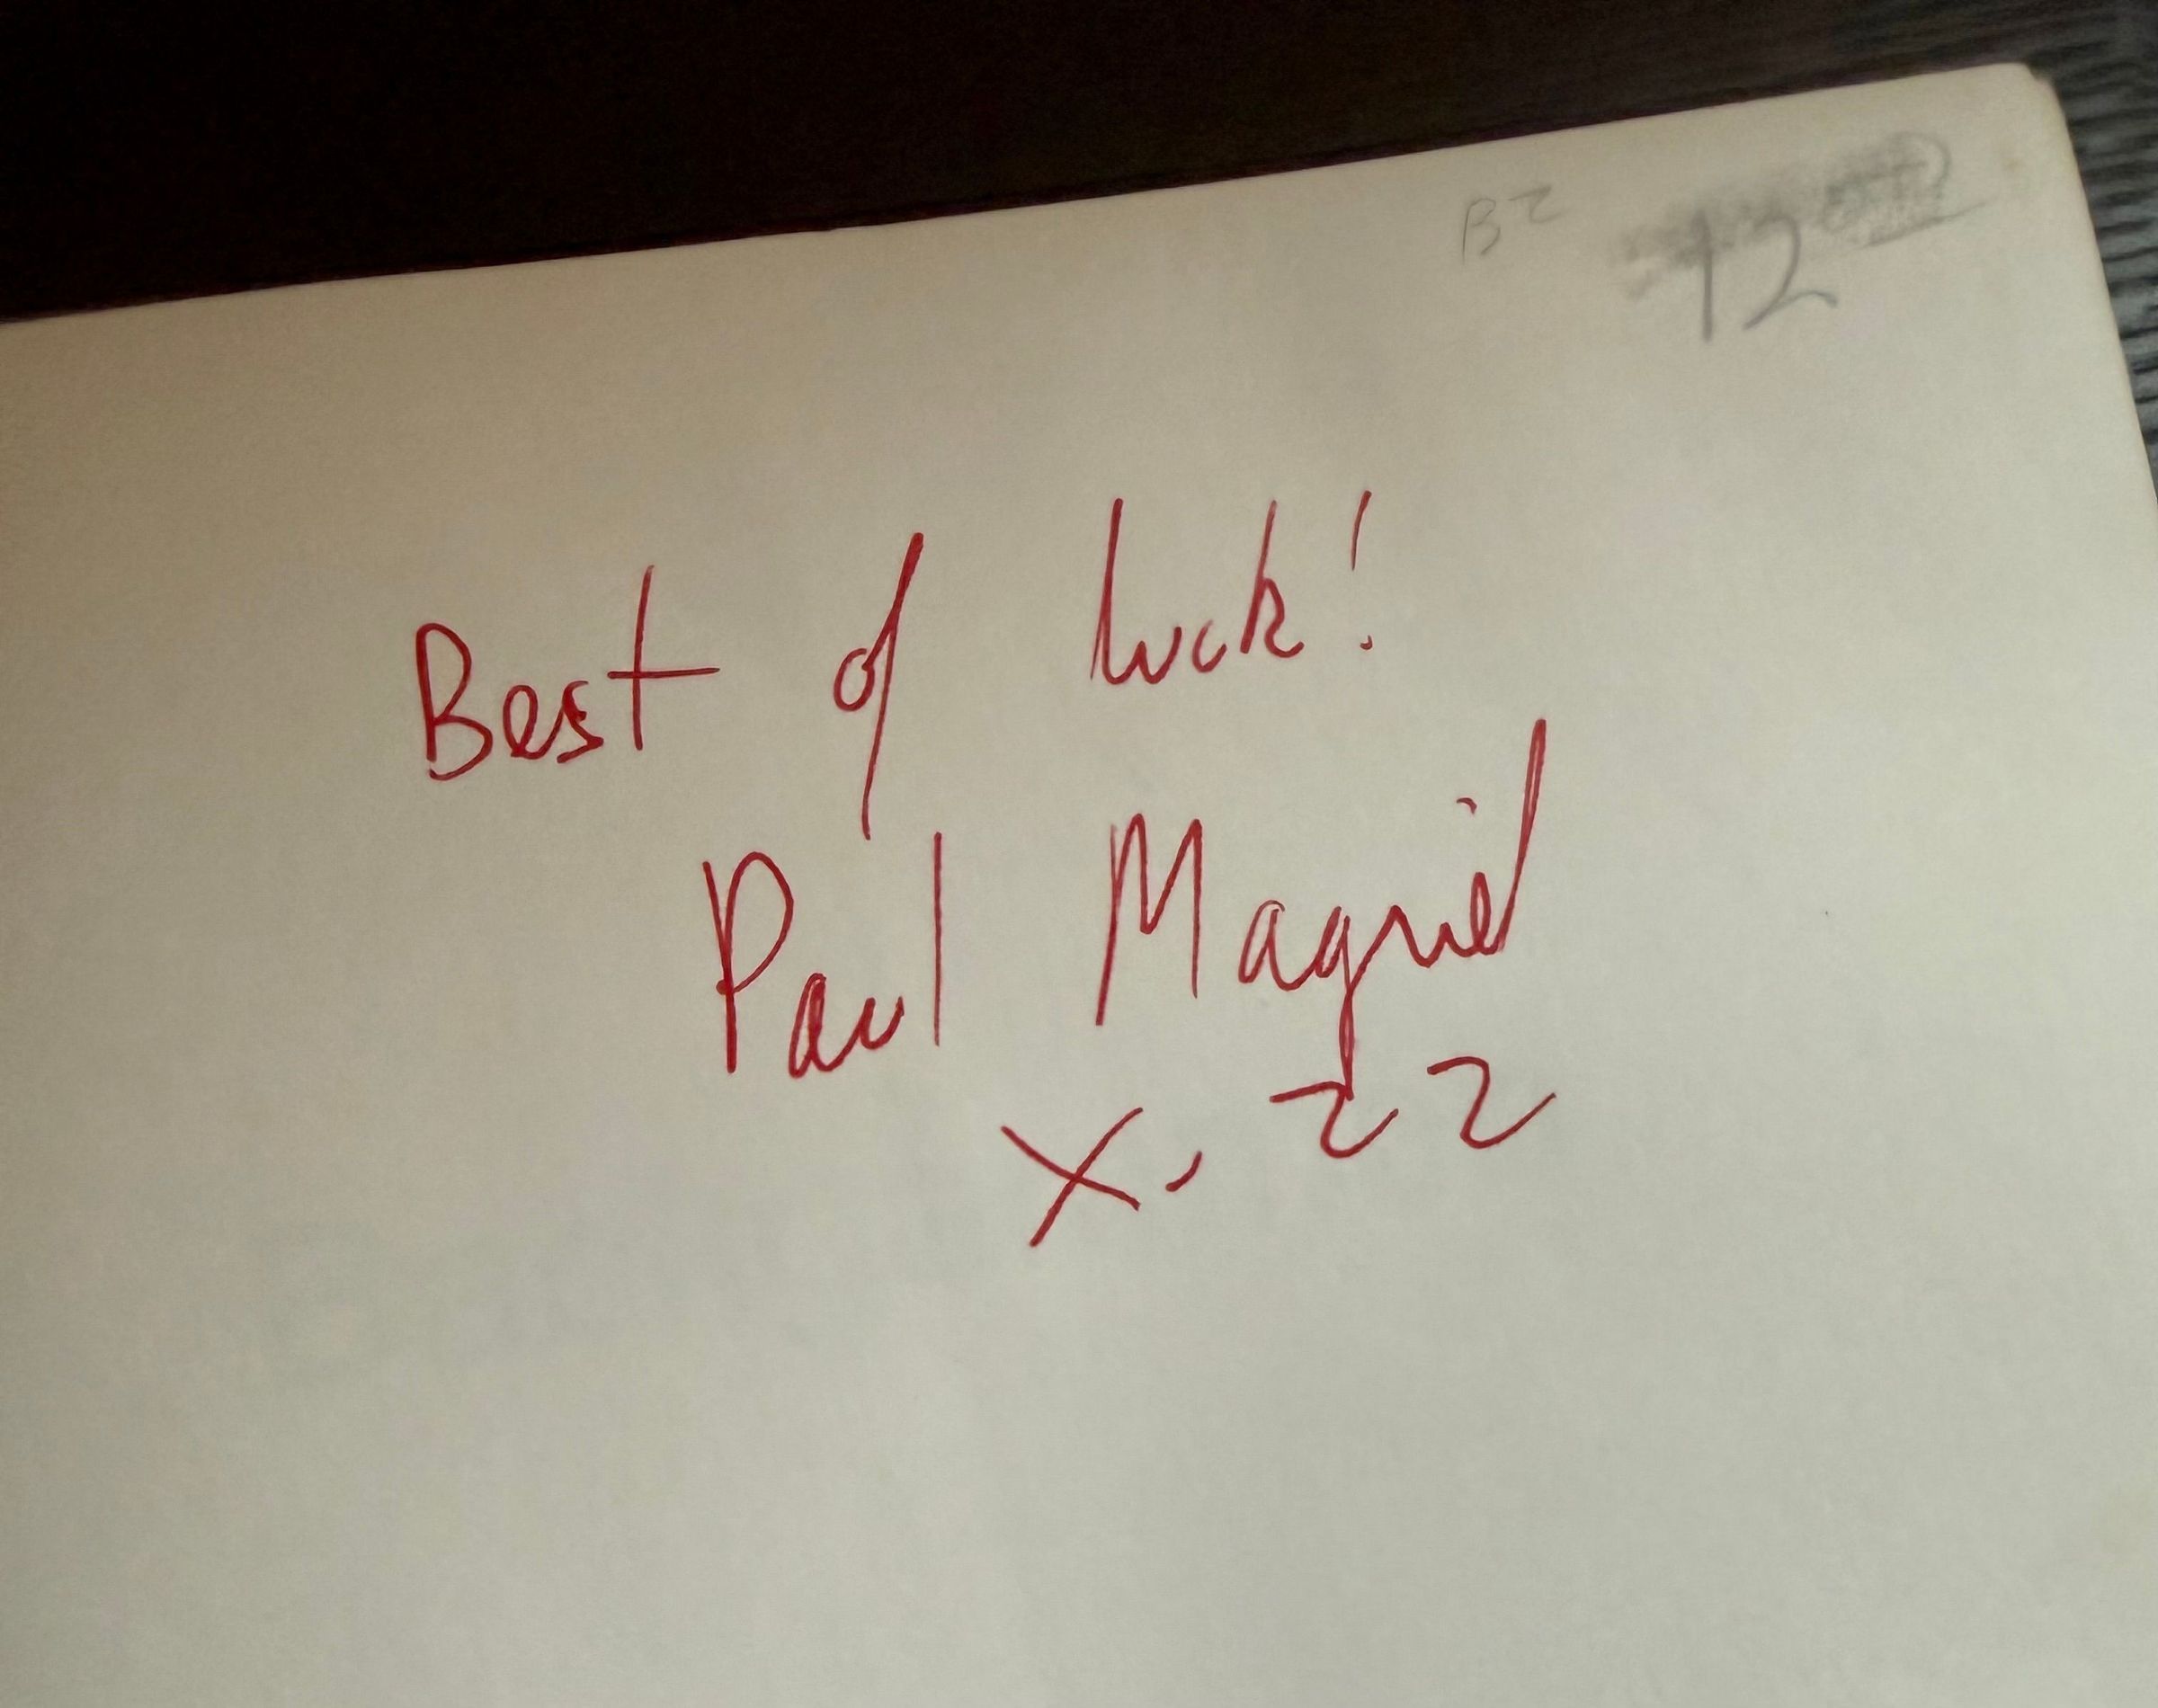 BZ 12
Best of luck!
Paul Magriel
X, 22